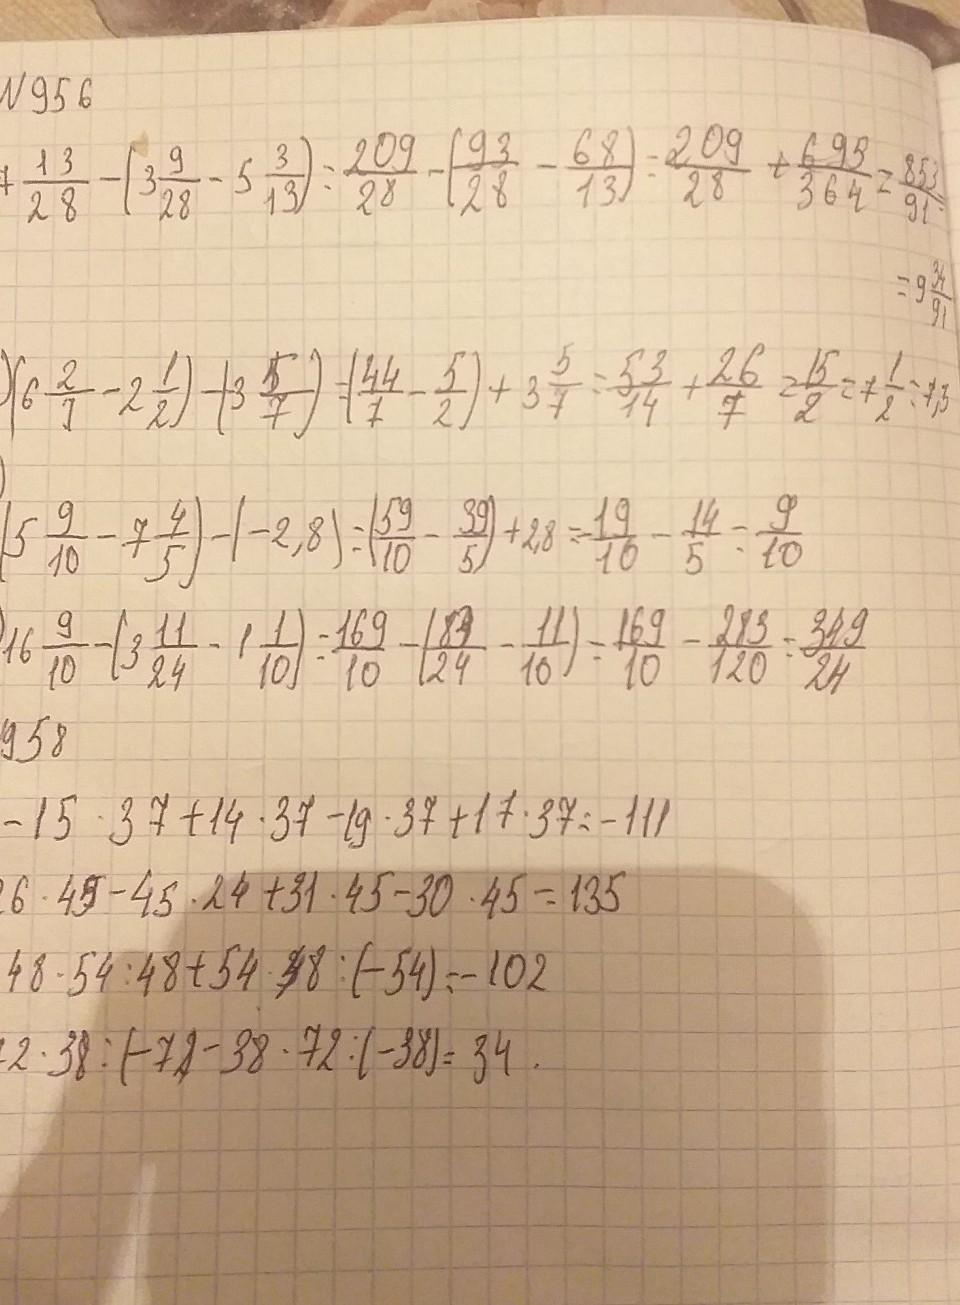 N956
7 13/28 - (3 9/28 - 5 3/13) = 209/28 - (93/28 - 68/13) = 209/28 + 695/364 = 853/91 =
= 9 34/91
)(6 2/7 - 2 1/2) - (3 5/7) = (44/7 - 5/2) + 3 5/7 = 53/14 + 26/7 = 15/2 = 7 1/2 = 7,5
)
(5 9/10 - 7 4/5) - (-2,8) = (59/10 - 39/5) + 2,8 = -19/10 - 14/5 = 9/10
)16 9/10 - (3 11/24 - 1 1/10) = 169/10 - (83/24 - 11/10) = 169/10 - 283/120 = 349/24
958
-15 · 37 + 14 · 37 - 19 · 37 + 17 · 37 = -111
26 · 45 - 45 · 24 + 31 · 45 - 30 · 45 = 135
48 · 54 : 48 + 54 · 48 : (-54) = -102
72 · 38 : (-72 - 38 · 72 : (-38) = 34 .